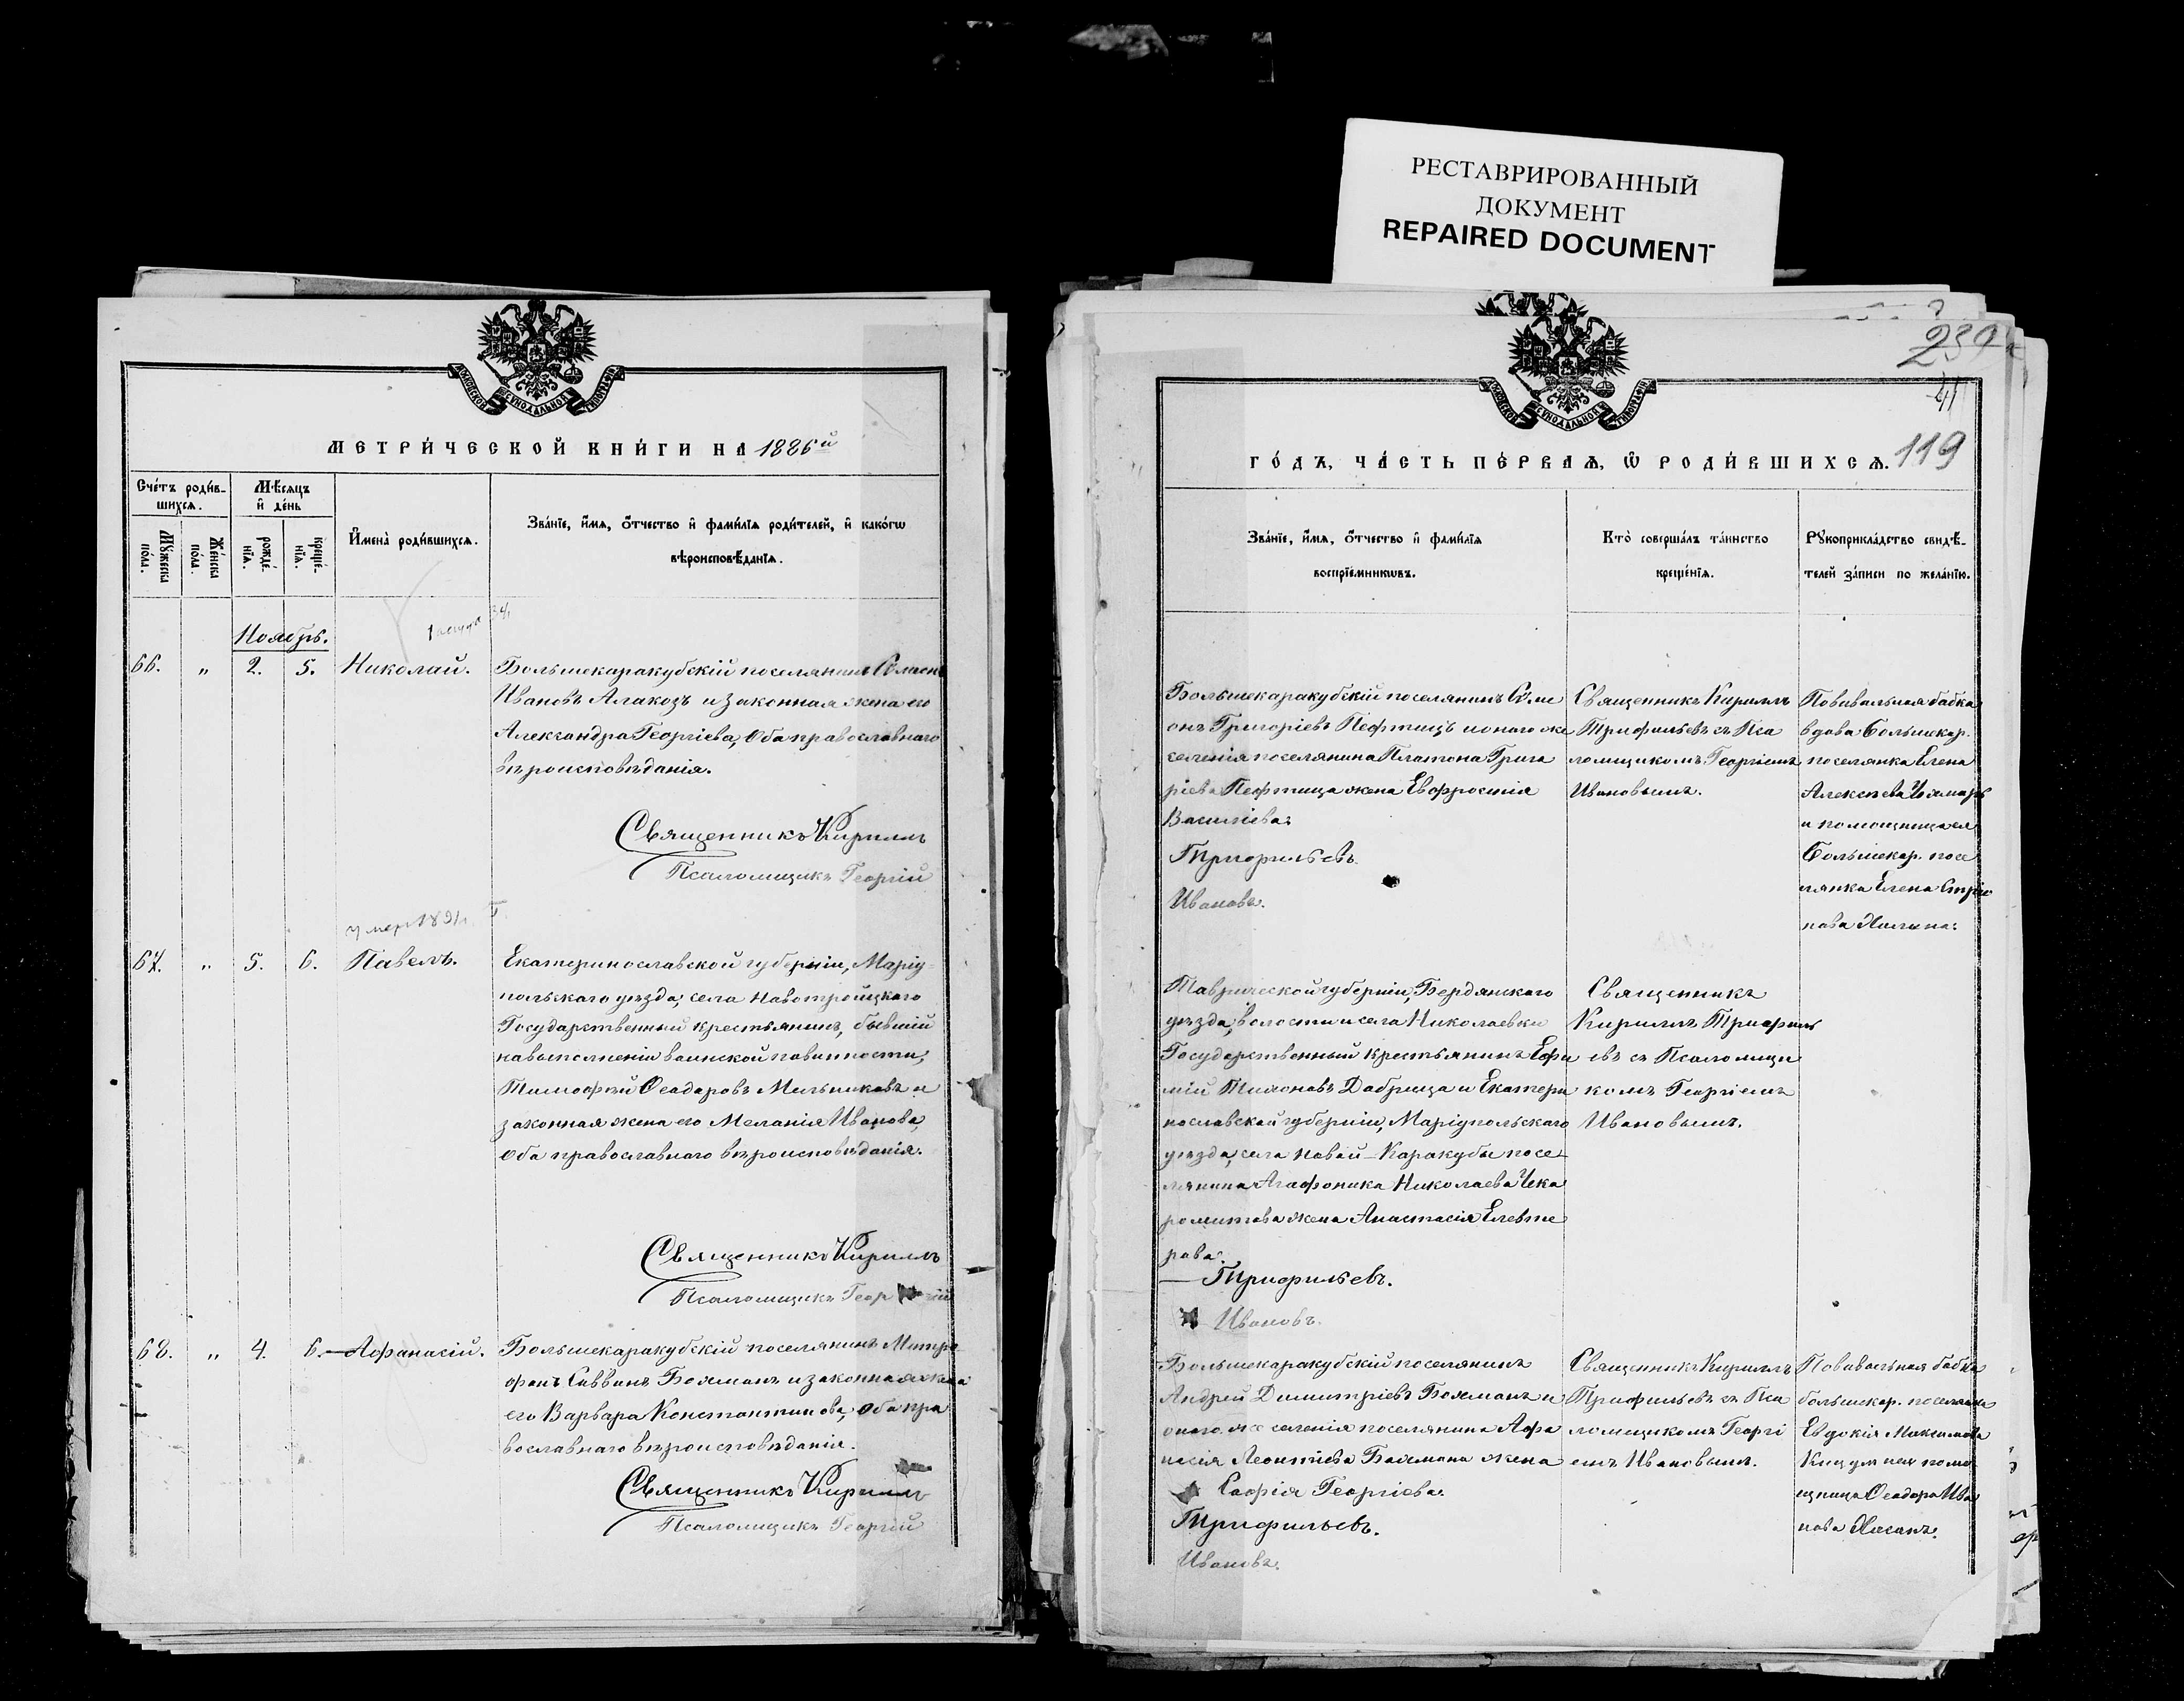 РЕСТАВРИРОВАННЫЙ
ДОКУМЕНТ
REPAIRED DOCUMENT
МОСКОВСКОЙ СѴНОДАЛЬНОЙ ТИПОГРАФІИ
МЕТРИ́ЧЕСКОЙ КНИ́ГИ НА 1886й
Сче́тъ роди́в-
шихсѧ.
Мѣсѧцъ
и҆ де́нь
Мꙋ́жеска по́ла.
Же́нска по́ла.
рожде́нїѧ.
креще́нїѧ.
И҆мена̀ роди́вшихсѧ.
Зва́нїе, и҆́мѧ, ѻ҆́тчество и҆ фами́лїѧ роди́телей, и҆ како́гѡ
вѣроисповѣ́данїѧ.
Ноябрь.
66. „ 2. 5. Николай.
Большекаракубскій поселянинъ Семенъ
Ивановъ Алакозъ и законная жена его
Александра Георгіева, Оба православнаго
вѣроисповѣданія.
Священникъ Кириллъ
Псаломщикъ Георгій
умер 1891 г.
67. „ 5. 6. Павелъ.
Екатеринославской губерніи, Маріу-
польскаго уѣзда, села Новотроицкаго
Государственный крестьянинъ, бывшій
на выполненіи воинской повинности,
Тимофей Ѳеодоровъ Мельниковъ и
законная жена его Меланія Иванова,
Оба православнаго вѣроисповѣданія.
Священникъ Кириллъ
Псаломщикъ Георгій
68. „ 4. 6. Афанасій.
Большекаракубскій поселянинъ Митро
фанъ Саввинъ Бахманъ и законная жена
его Варвара Константинова, Оба пра
вославнаго вѣроисповѣданія.
Священникъ Кириллъ
Псаломщикъ Георгій
239
41
МОСКОВСКОЙ СѴНОДАЛЬНОЙ ТИПОГРАФІИ
ГО́ДЪ, ЧА́СТЬ ПЕ́РВАѦ, Ѽ РОДИ́ВШИХСѦ. 119
Зва́нїе, и҆́мѧ, ѻ҆́тчество и҆ фами́лїѧ
воспрїе́мникѡвъ.
Кто̀ соверша́лъ та́инство
креще́нїѧ.
Рꙋкоприкла́дство свидѣ́-
телей за́писи по жела́нїю.
Большекаракубскій поселянинъ Семе
онъ Григоріевъ Пефтицъ и онаго же
селенія поселянина Платона Григо
ріева Пефтица жена Евфросинія
Василіева.
Трифильевъ
Ивановъ.
Священникъ Кириллъ
Трифильевъ съ Пса
ломщикомъ Георгіемъ
Ивановымъ.
Повивальная бабка
вдова большекар.
поселянка Елена
Алексеева
и помощница ея
большекар. посе
лянка Елена
нова
Таврической губерніи, Бердянского
уѣзда, волости и села Николаевки
Государственный крестьянинъ Ефи
мій Тихоновъ Добрица и Екатери
нославской губерніи, Маріупольскаго
уѣзда, села Новой-Каракубы посе-
лянина Агафоника Николаева Чека
рова жена Анастасія Елевте
рова.
Трифильевъ.
Ивановъ.
Священникъ
Кириллъ Трифиль
евъ съ Псаломщи
комъ Георгіемъ
Ивановымъ.
Большекаракубскій поселянинъ
Андрей Димитріевъ Бахманъ и
онаго же селенія поселянина Афа
насія Леонтіева Бахмана жена
Софія Георгіева.
Трифильевъ.
Ивановъ.
Священникъ Кириллъ
Трифильевъ съ Пса
ломщикомъ Георгі
емъ Ивановымъ.
Повивальная бабка
большекар. поселянка
Евдокія Максимова
помо
щница Ѳеодора Ива
нова Хасанъ.